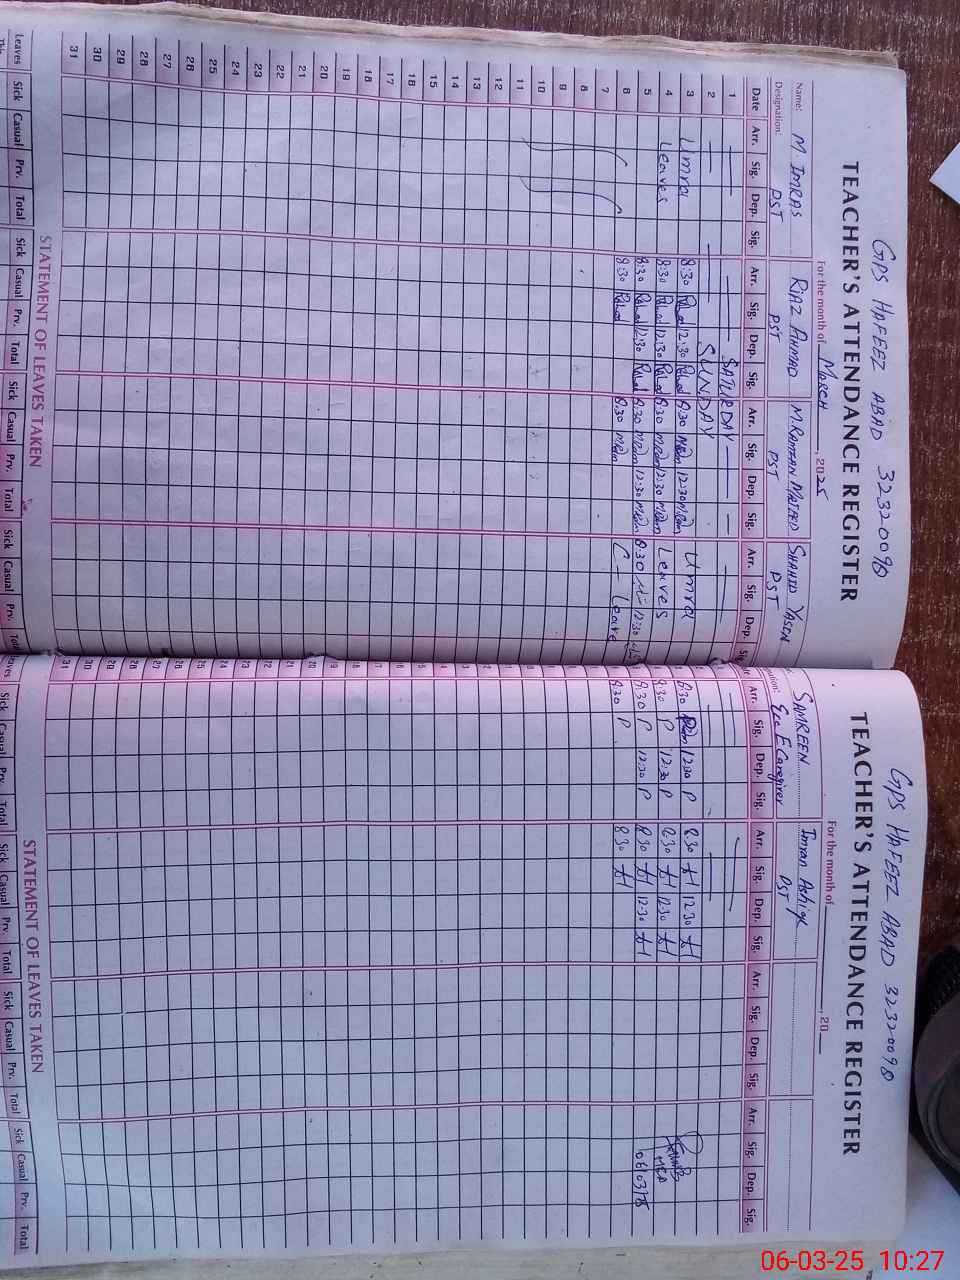 GPS HAFEEZ ABAD 32320098
TEACHER'S ATTENDANCE REGISTER
For the month of March, 2025
Name: M IMRAS RIAZ AHMAD M. RAMZAN MAJEED SHAHID YASEN
Designation: PST PST PST PST
Date Arr. Sig. Dep. Sig. Arr. Sig. Dep. Sig. Arr. Sig. Dep. Sig. Arr. Sig. Dep.
1 SATURDAY
2 SUNDAY
3 Umra 8:30 12:30 8:30 12:30 Umra
4 Leaves 8:30 12:30 8:30 12:30 Leaves
5 8:30 12:30 8:30 12:30 8:30 12:30
6 8:30 8:30 C- Leave
7
8
9
10
11
12
13
14
15
16
17
18
19
20
21
22
23
24
25
26
27
28
29
30
31
STATEMENT OF LEAVES TAKEN
Leaves Sick Casual Prv. Total Sick Casual Prv. Total Sick Casual Prv. Total Sick Casual Prv. Total
GPS HAFEEZ ABAD 32320098
TEACHER'S ATTENDANCE REGISTER
For the month of , 20
SAMREEN Imran Ashiq
Ece E Caregiver PST
Arr. Sig. Dep. Sig. Arr. Sig. Dep. Sig. Arr. Sig. Dep. Sig. Arr. Sig. Dep. Sig.
8:30 12:30 P 8:30 12:30
8:30 P 12:30 P 8:30 12:30
8:30 P 12:30 P 8:30 12:30 06/03/25
8:30 P 8:30
MEA
STATEMENT OF LEAVES TAKEN
Sick Casual Prv. Total Sick Casual Prv. Total Sick Casual Prv. Total Sick Casual Prv. Total
06-03-25 10:27